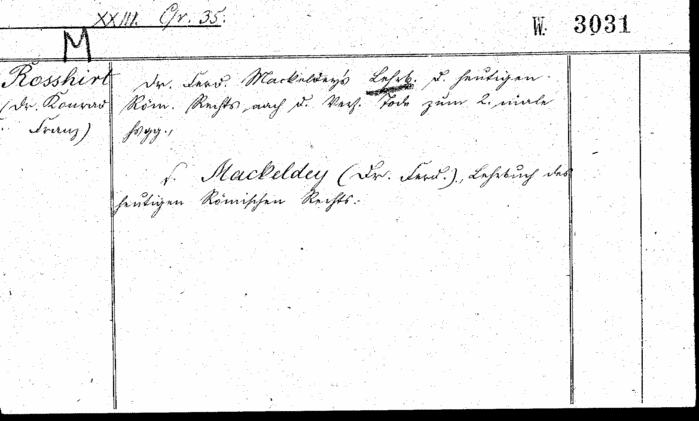 XXIII. Cr. 35.
W. 3031
M
Rosshirt
(Dr. Konrad
Franz)
Dr. Ferd. Mackeldey's Lehrb. d. heutigen
Röm. Rechts nach d. Verf. Tode zum 2. male
hsgg.,
s. Mackeldey (Dr. Ferd.), Lehrbuch des
heutigen Römischen Rechts.